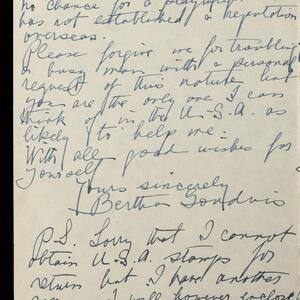 no chance for a playwright
has not established a reputation
overseas.
Please forgive me for troubling
a busy man with a personal
request of this nature but
you are the only one I can
think of in the U.S.A. as
likely to help me.
With all good wishes for
yourself
Yours sincerely
Bertha
P.S. Sorry that I cannot
obtain U.S.A. stamps for
return but I have another
I will however enclose